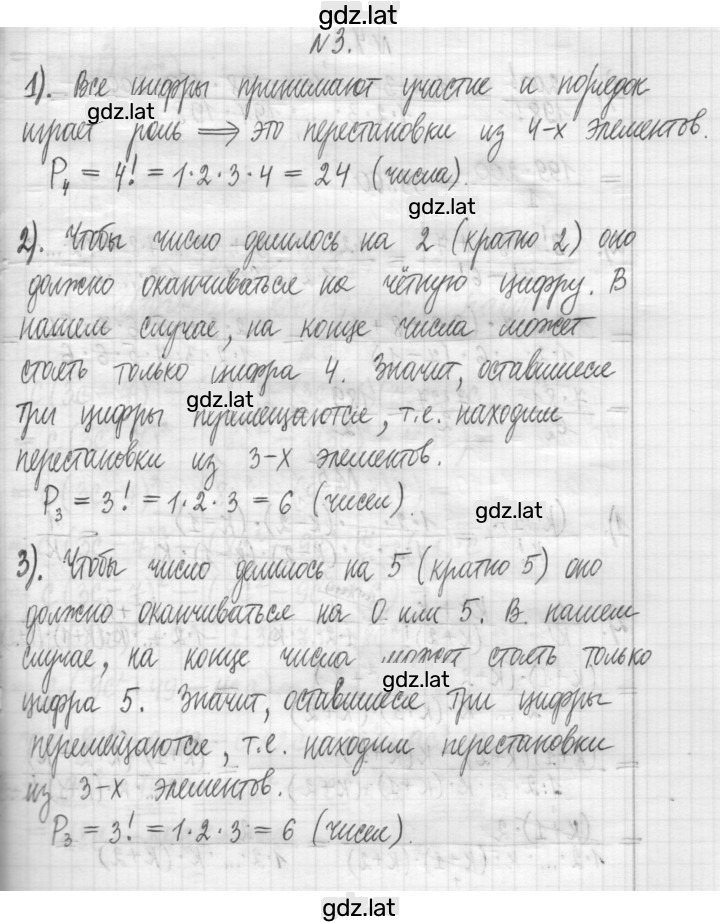 gdz.lat
N3.
1). Все цифры принимают участие и порядок
gdz.lat
играет роль ⟹ это перестановки из 4-х элементов.
P₄ = 4! = 1·2·3·4 = 24 (числа).
gdz.lat
2). Чтобы число делилось на 2 (кратно 2) оно
должно оканчиваться на чётную цифру. В
нашем случае, на конце числа может
стоять только цифра 4. Значит, оставшиеся
gdz.lat
три цифры перемещаются, т.е. находим
перестановки из 3-х элементов.
P₃ = 3! = 1·2·3 = 6 (чисел).
gdz.lat
3). Чтобы число делилось на 5 (кратно 5) оно
должно оканчиваться на 0 или 5. В нашем
случае, на конце числа может стоять только
gdz.lat
цифра 5. Значит, оставшиеся три цифры
перемещаются, т.е. находим перестановки
из 3-х элементов.
P₃ = 3! = 1·2·3 = 6 (чисел).
gdz.lat